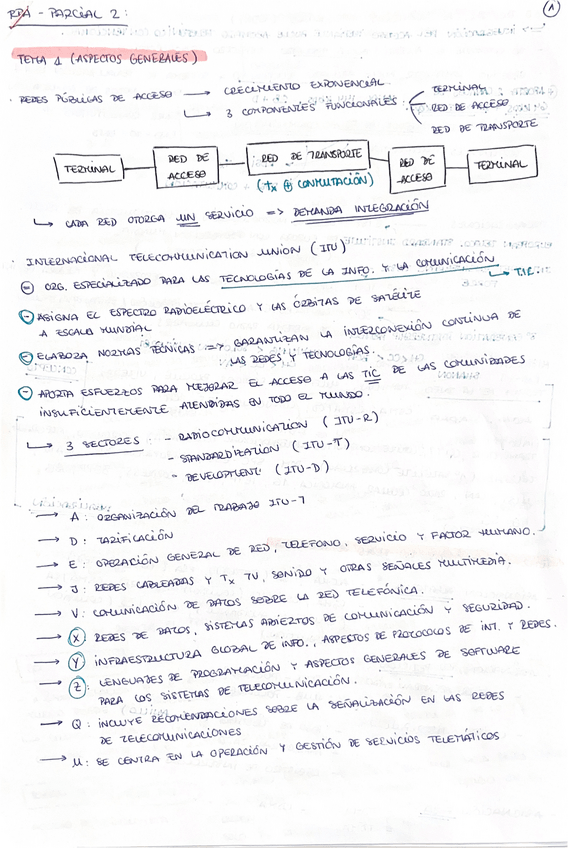 RPA - PARCIAL 2:
1
TEMA 1 (ASPECTOS GENERALES)
· REDES PÚBLICAS DE ACCESO → CRECIMIENTO EXPONENCIAL
↳ 3 COMPONENTES FUNCIONALES:
TERMINAL
RED DE ACCESO
RED DE TRANSPORTE
TERMINAL
RED DE ACCESO
RED DE TRANSPORTE
RED DE ACCESO
TERMINAL
(Tx ⊕ CONMUTACIÓN)
↳ CADA RED OTORGA UN SERVICIO => DEMANDA INTEGRACIÓN
· INTERNACIONAL TELECOMMUNICATION UNION (ITU)
⊖ ORG. ESPECIALIZADO PARA LAS TECNOLOGÍAS DE LA INFO. Y LA COMUNICACIÓN
↳ TIC.
⊖ ASIGNA EL ESPECTRO RADIOELÉCTRICO Y LAS ÓRBITAS DE SATÉLITE
A ESCALA MUNDIAL
⊖ ELABORA NORMAS TÉCNICAS => GARANTIZAN LA INTERCONEXIÓN CONTINUA DE
LAS REDES Y TECNOLOGÍAS.
⊖ APORTA ESFUERZOS PARA MEJORAR EL ACCESO A LAS TIC DE LAS COMUNIDADES
INSUFICIENTEMENTE ATENDIDAS EN TODO EL MUNDO.
↳ 3 SECTORES: - RADIOCOMMUNICATION (ITU-R)
- STANDARDIZATION (ITU-T)
- DEVELOPMENT (ITU-D)
→ A: ORGANIZACIÓN DEL TRABAJO ITU-T
→ D: TARIFICACIÓN
→ E: OPERACIÓN GENERAL DE RED, TELÉFONO, SERVICIO Y FACTOR HUMANO.
→ J: REDES CABLEADAS Y Tx TV, SONIDO Y OTRAS SEÑALES MULTIMEDIA.
→ V: COMUNICACIÓN DE DATOS SOBRE LA RED TELEFÓNICA.
→ X: REDES DE DATOS, SISTEMAS ABIERTOS DE COMUNICACIÓN Y SEGURIDAD.
→ Y: INFRAESTRUCTURA GLOBAL DE INFO., ASPECTOS DE PROTOCOLOS DE INT. Y REDES.
→ Z: LENGUAJES DE PROGRAMACIÓN Y ASPECTOS GENERALES DE SOFTWARE
PARA LOS SISTEMAS DE TELECOMUNICACIÓN.
→ Q: INCLUYE RECOMENDACIONES SOBRE LA SEÑALIZACIÓN EN LAS REDES
DE TELECOMUNICACIONES
→ M: SE CENTRA EN LA OPERACIÓN Y GESTIÓN DE SERVICIOS TELEMÁTICOS